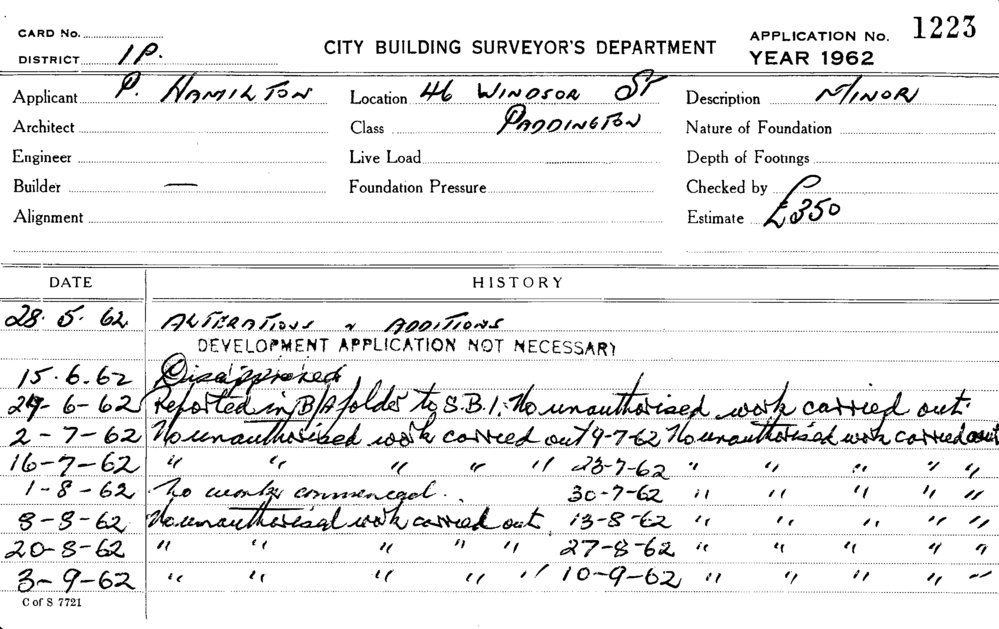 CARD No. CITY BUILDING SURVEYOR'S DEPARTMENT APPLICATION No. 1223
DISTRICT 1P. YEAR 1962
Applicant P. HAMILTON Location 46 WINDSOR ST Description MINOR
Architect Class PADDINGTON Nature of Foundation
Engineer Live Load Depth of Footings
Builder — Foundation Pressure Checked by
Alignment Estimate £350
DATE HISTORY
28. 5. 62 ALTERATIONS & ADDITIONS
DEVELOPMENT APPLICATION NOT NECESSARY
15.6.62 Disapproved
24-6-62 Reported in B/A folder to S.B.I. No unauthorised work carried out.
2-7-62 No unauthorised work carried out 9-7-62 No unauthorised work carried out
16-7-62 " " " " " 23-7-62 " " " " "
1-8-62 No works commenced. 30-7-62 " " " " "
8-8-62 No unauthorised work carried out 13-8-62 " " " " "
20-8-62 " " " " " 27-8-62 " " " " "
3-9-62 " " " " " 10-9-62 " " " " "
C of S 7721